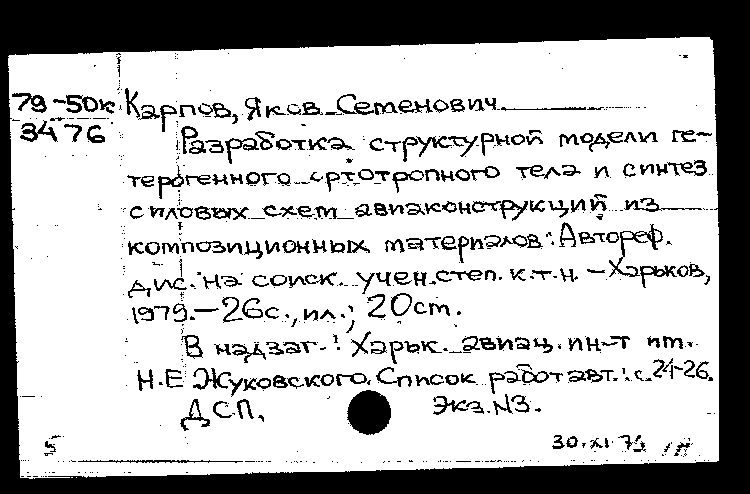 79-50к Карпов, Яков Семенович.
3476
Разработка структурной модели ге-
терогенного ортотропного тела и синтез
силовых схем авиаконструкций из
композиционных материалов: Автореф.
дис. на соиск. учен. степ. к.т.н. – Харьков,
1979. – 26с., ил.; 20см.
В надзаг.: Харьк. авиац. ин-т им.
Н.Е Жуковского. Список работ авт.: с. 24-26.
ДСП. Экз. №3.
5 30.XI.79